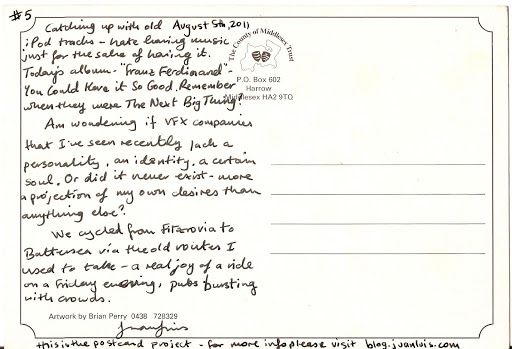 #5
Catching up with old August 5th, 2011
iPod tracks - hate having music
just for the sake of having it.
Today's album - "Franz Ferdinand" -
You Could Have it So Good. Remember
when they were The Next Big Thing?
Am wondering if VFX companies
that I've seen recently lack a
personality, an identity, a certain
soul. Or did it never exist - more
a projection of my own desires than
anything else?
We cycled from Fitzrovia to
Battersea via the old routes I
used to take - a real joy of a ride
on a Friday evening, pubs bursting
with crowds.
Artwork by Brian Perry 0438 728329
juanluis
The County of Middlesex Trust
P.O. Box 602
Harrow
Middlesex HA2 9TQ
this is the postcard project - for more info please visit blog.juanluis.com